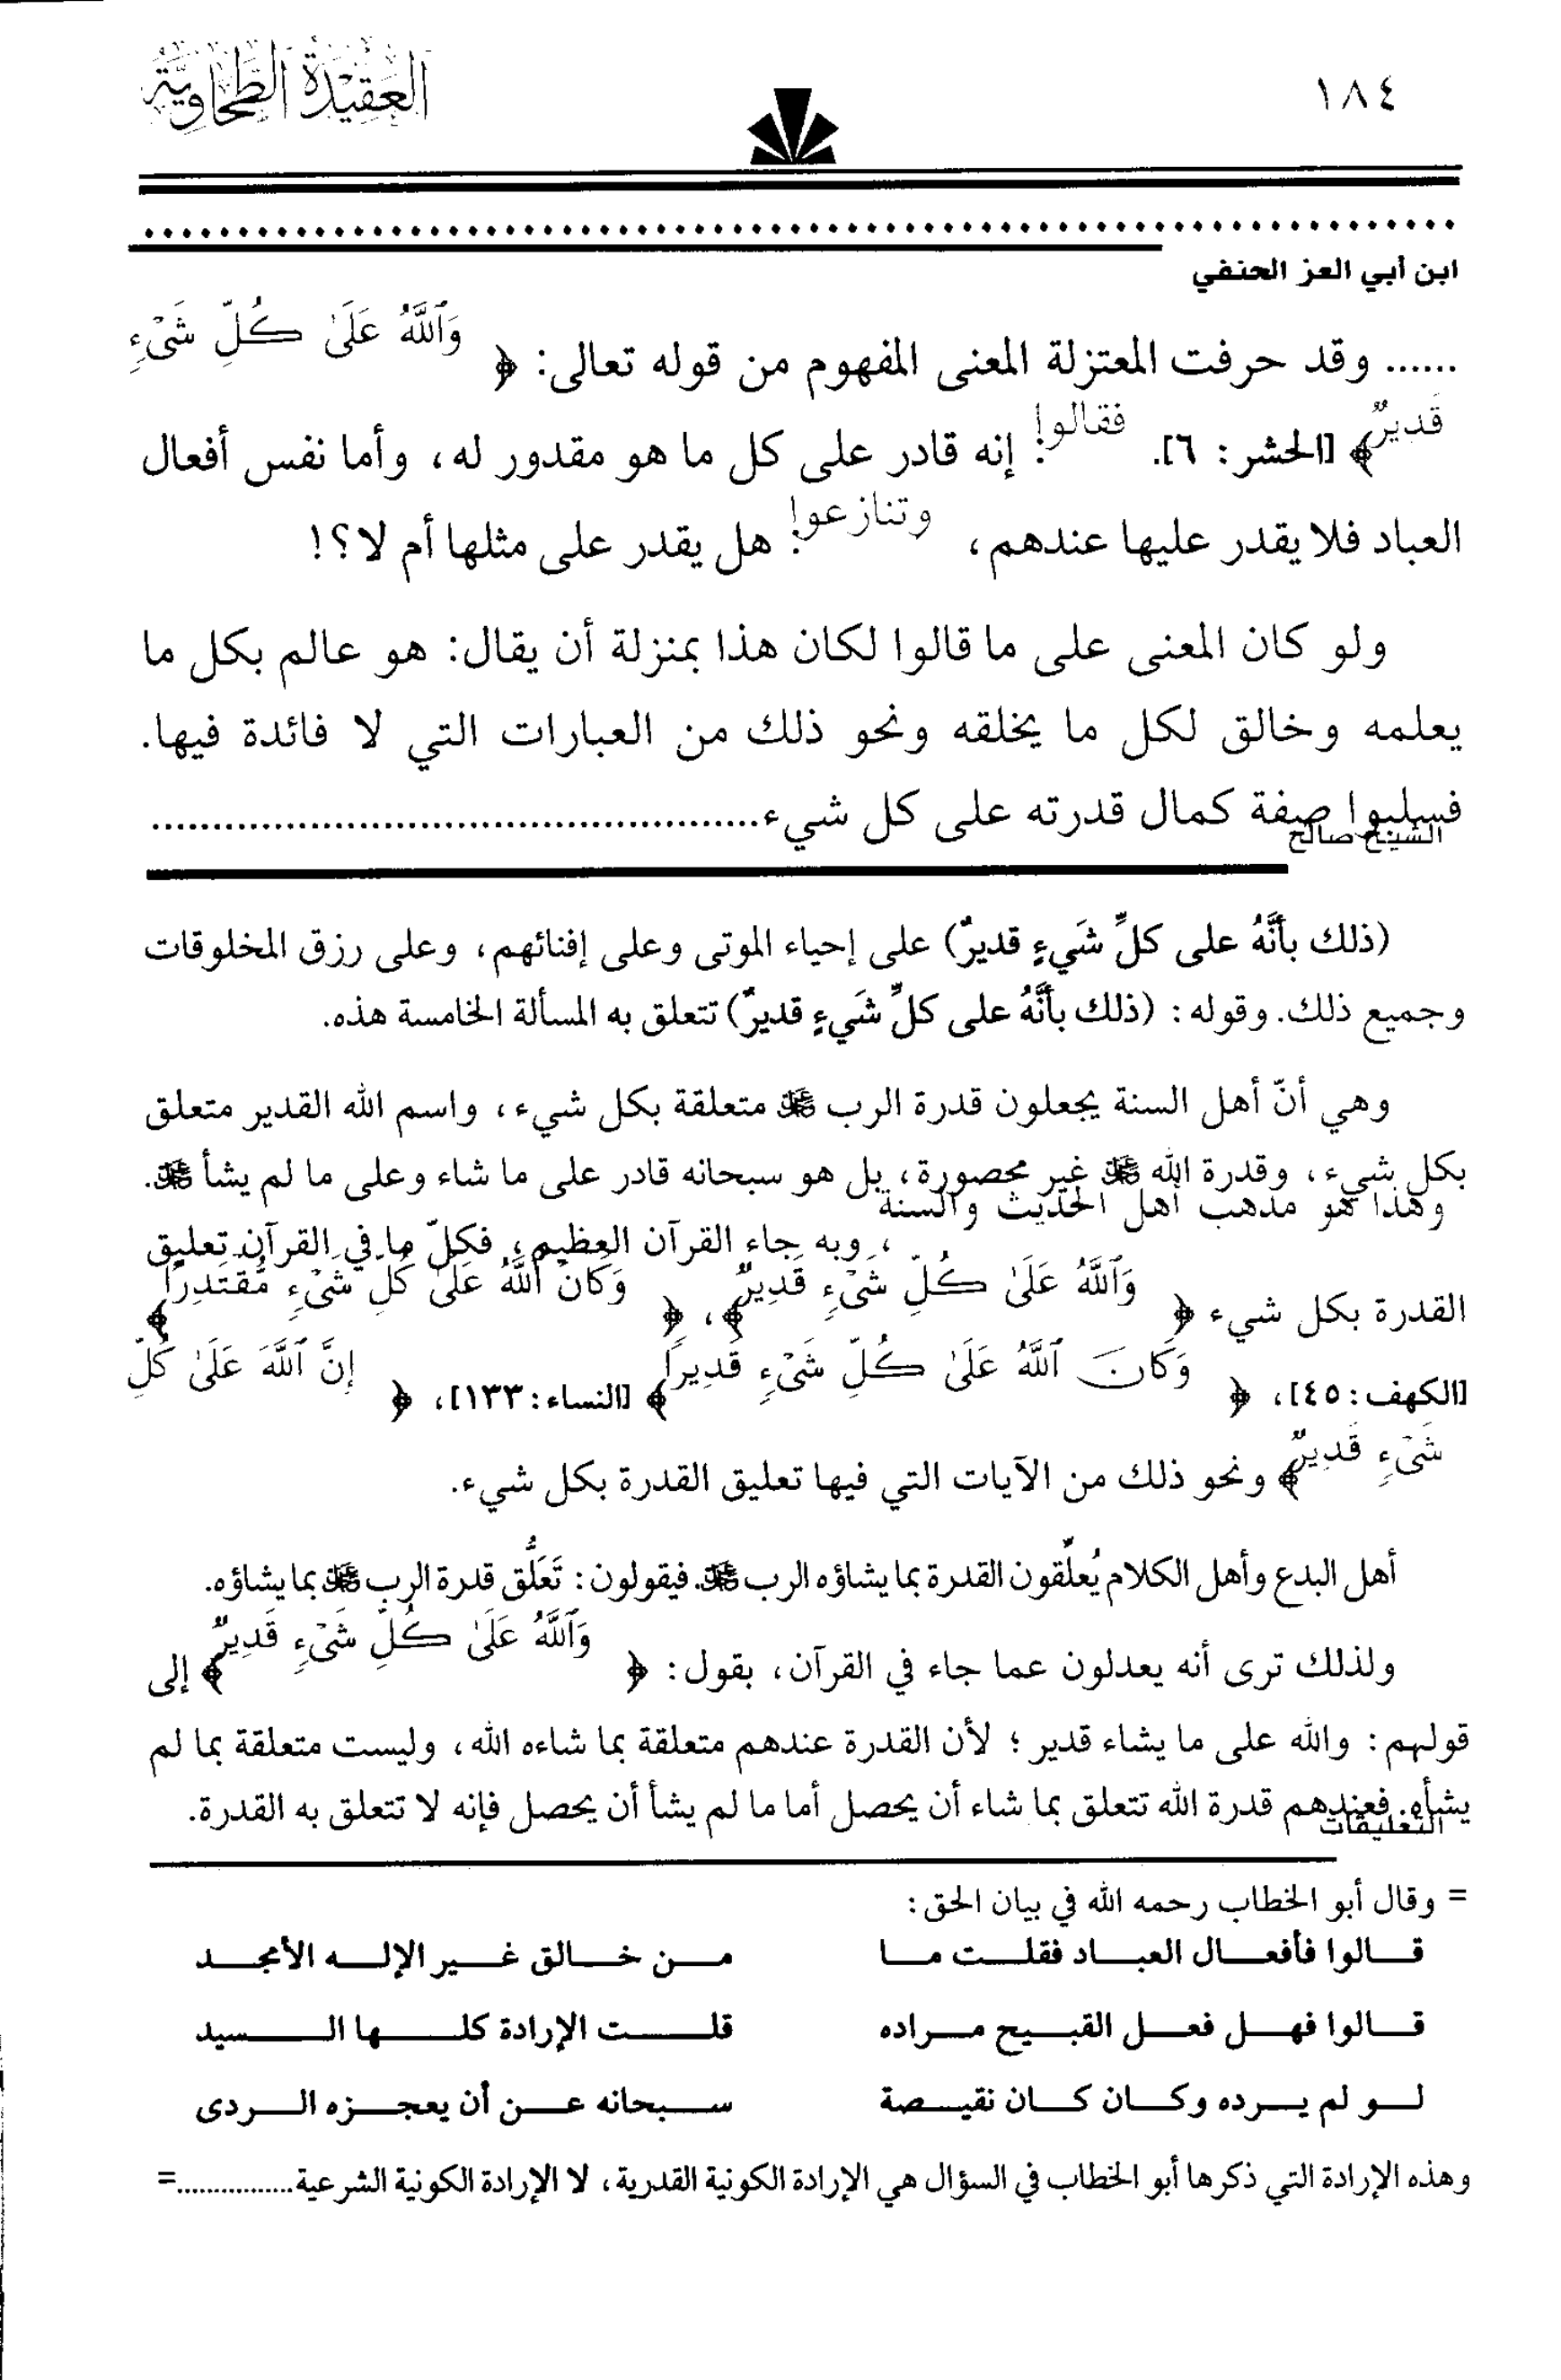 ١٨٤ العَقِيْدَةُ الطَّحَاوِيَّةُ
ابن أبي العز الحنفي
...... وقد حرفت المعتزلة المعنى المفهوم من قوله تعالى: ﴿ وَٱللَّهُ عَلَىٰ كُلِّ شَىْءٍ
قَدِيرٌ ﴾ [الحشر: ٦]. فقالوا: إنه قادر على كل ما هو مقدور له، وأما نفس أفعال
العباد فلا يقدر عليها عندهم، وتنازعوا: هل يقدر على مثلها أم لا؟!
ولو كان المعنى على ما قالوا لكان هذا بمنزلة أن يقال: هو عالم بكل ما
يعلمه وخالق لكل ما يخلقه ونحو ذلك من العبارات التي لا فائدة فيها.
فسلبوا صفة كمال قدرته على كل شيء..................................................
الشيخ صالح
(ذلك بأنَّهُ على كلِّ شَيءٍ قديرٌ) على إحياء الموتى وعلى إفنائهم، وعلى رزق المخلوقات
وجميع ذلك. وقوله: (ذلك بأنَّهُ على كلِّ شَيءٍ قديرٌ) تتعلق به المسألة الخامسة هذه.
وهي أنّ أهل السنة يجعلون قدرة الرب ﷻ متعلقة بكل شيء، واسم الله القدير متعلق
بكل شيء، وقدرة الله ﷻ غير محصورة، بل هو سبحانه قادر على ما شاء وعلى ما لم يشأ ﷻ.
وهذا هو مذهب أهل الحديث والسنة
، وبه جاء القرآن العظيم، فكلّ ما في القرآن تعليق
القدرة بكل شيء ﴿ وَٱللَّهُ عَلَىٰ كُلِّ شَىْءٍ قَدِيرٌ ﴾، ﴿ وَكَانَ ٱللَّهُ عَلَىٰ كُلِّ شَىْءٍ مُّقْتَدِرًا ﴾
[الكهف: ٤٥]، ﴿ وَكَانَ ٱللَّهُ عَلَىٰ كُلِّ شَىْءٍ قَدِيرًا ﴾ [النساء: ١٣٣]، ﴿ إِنَّ ٱللَّهَ عَلَىٰ كُلِّ
شَىْءٍ قَدِيرٌ ﴾ ونحو ذلك من الآيات التي فيها تعليق القدرة بكل شيء.
أهل البدع وأهل الكلام يُعلّقون القدرة بما يشاؤه الرب ﷻ. فيقولون: تَعَلُّق قدرة الرب ﷻ بما يشاؤه.
ولذلك ترى أنه يعدلون عما جاء في القرآن، بقول: ﴿ وَٱللَّهُ عَلَىٰ كُلِّ شَىْءٍ قَدِيرٌ ﴾ إلى
قولهم: والله على ما يشاء قدير؛ لأن القدرة عندهم متعلقة بما شاءه الله، وليست متعلقة بما لم
يشأه. فعندهم قدرة الله تتعلق بما شاء أن يحصل أما ما لم يشأ أن يحصل فإنه لا تتعلق به القدرة.
التعليقات
= وقال أبو الخطاب رحمه الله في بيان الحق:
قـالوا فأفعـال العبـاد فقلـت مـا مـن خـالق غـير الإلـه الأمجـد
قـالوا فهـل فعـل القبـيح مـراده قلـت الإرادة كلـها الـسيد
لـو لم يـرده وكـان كـان نقيـصة سـبحانه عـن أن يعجـزه الـردى
وهذه الإرادة التي ذكرها أبو الخطاب في السؤال هي الإرادة الكونية القدرية، لا الإرادة الكونية الشرعية...............=